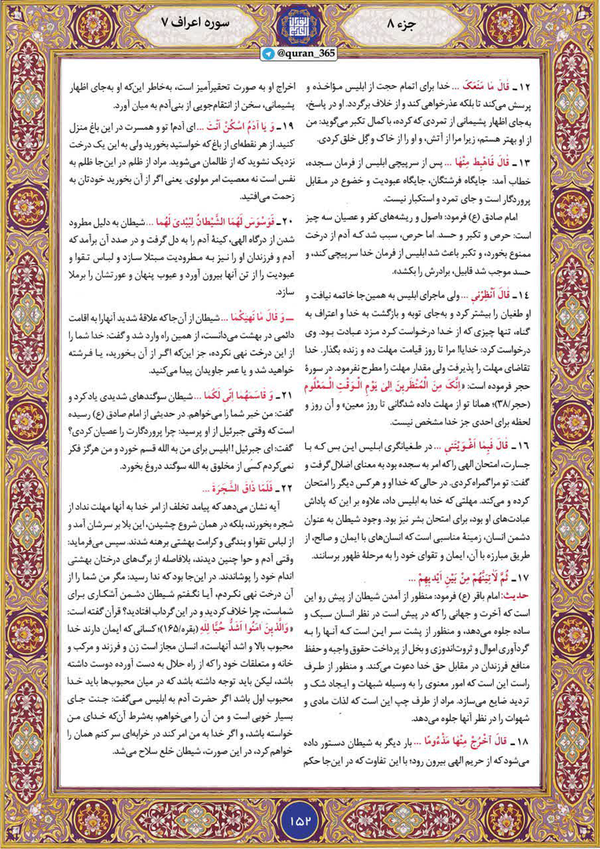 جزء ۸
سوره اعراف ۷
@quran_365
۱۲ـ قَالَ مَا مَنَعَکَ ... خدا برای اتمام حجت از ابلیس مـؤاخـذه و
پرسش می‌کند تا بلکه عذرخواهی کند و از خلاف برگردد. او در پاسخ،
به‌جای اظهار پشیمانی از تمردی که کرده، با کمال تکبر می‌گوید: من
از او بهتر هستم، زیرا مرا از آتش، و او را از خاک و گِل خلق کردی.
۱۳ـ قَالَ فَاهْبِطْ مِنْهَا ... پس از سرپیچی ابلیس از فرمان سجده،
خطاب آمد: جایگاه فرشتگان، جایگاه عبودیت و خضوع در مـقابل
پروردگار است و جای تمرد و استکبار نیست.
امام صادق (ع) فرمود: «اصول و ریشه‌های کفر و عصیان سه چیز
است: حرص و تکبر و حسد. اما حرص، سبب شد کـه آدم از درخت
ممنوع بخورد، و تکبر باعث شد ابلیس از فرمان خدا سرپیچی کند، و
حسد موجب شد قابیل، برادرش را بکشد».
۱۴ـ قَالَ اَنْظِرْنی ... ولی ماجرای ابلیس به همین‌جا خاتمه نیافت و
او طغیان را بیشتر کرد و به‌جای توبه و بازگشت به خدا و اعتراف به
گناه، تنها چیزی که از خـدا درخـواسـت کـرد مـزد عبادت بـود. وی
درخواست کرد: خدایا! مرا تا روز قیامت مهلت ده و زنده بگذار. خدا
تقاضای مهلت را پذیرفت ولی مقدار مهلت را مطرح نفرمود. در سورهٔ
حجر فرموده است: «اِنَّکَ مِنَ الْمُنْظَرینَ اِلیٰ یَوْمِ الْـوَقْتِ الْـمَعْلُومِ
(حجر/۳۸)؛ همانا تو از مهلت داده شدگانی تا روز معین» و آن روز و
لحظه برای احدی جز خدا مشخص نیست.
۱۶ـ قَالَ فَبِمَا اَغْوَیْتَنی ... در طـغیانگری ابـلیس ایـن بس کـه بـا
جسارت، امتحان الهی را که امر به سجده بود به معنای اضلال گرفت و
گفت: تو مرا گمراه کردی. در حالی که خدا او و هر کس دیگر را امتحان
کرده و می‌کند. مهلتی که خدا به ابلیس داد، علاوه بر این که پاداش
عبادت‌های او بود، برای امتحان بشر نیز بود. وجود شیطان به عنوان
دشمن انسان، زمینهٔ مناسبی است که انسان‌های با ایمان و صالح، از
طریق مبارزه با آن، ایمان و تقوای خود را به مرحلهٔ ظهور برسانند.
۱۷ـ ثُمَّ لَآتِیَنَّهُمْ مِنْ بَیْنِ اَیْدیهِمْ ...
حدیث: امام باقر (ع) فرمود: منظور از آمدن شیطان از پیش رو این
است که آخرت و جهانی را که در پیش است در نظر انسان سـبک و
ساده جلوه می‌دهد، و منظور از پشت سـر ایـن اسـت کـه آنـها را بـه
گردآوری اموال و ثروت‌اندوزی و بخل از پرداخت حقوق واجبه و حفظ
منافع فرزندان در مقابل حق خدا دعوت می‌کند. و منظور از طـرف
راست این است که امور معنوی را به وسیله شبهات و ایجاد شک و
تردید ضایع می‌سازد. مراد از طرف چپ این است که لذات مادی و
شهوات را در نظر آنها جلوه می‌دهد.
۱۸ـ قالَ اخْرُجْ مِنْهَا مَذْءُومًا ... بار دیگر به شیطان دستور داده
می‌شود که از حریم الهی بیرون رود؛ با این تفاوت که در این‌جا حکم
اخراج او به صورت تحقیرآمیز است، به‌خاطر این‌که او به‌جای اظهار
پشیمانی، سخن از انتقام‌جویی از بنی‌آدم به میان آورد.
۱۹ـ وَ یَا آدَمُ اسْکُنْ اَنْتَ ... ای آدم! تو و همسرت در این باغ منزل
کنید. از هر نقطه‌ای از باغ که خواستید بخورید ولی به این یک درخت
نزدیک نشوید که از ظالمان می‌شوید. مراد از ظلم در این‌جا ظلم به
نفس است نه معصیت امر مولوی. یعنی اگر از آن بخورید خودتان به
زحمت می‌افتید.
۲۰ـ فَوَسْوَسَ لَهُمَا الشَّیْطَانُ لِیُبْدِیَ لَهُمَا ... شیطان به دلیل مطرود
شدن از درگاه الهی، کینهٔ آدم را به دل گرفت و در صدد آن برآمد که
آدم و فرزندان او را نیـز بـه مـطرودیت مبتلا سـازد و لبـاس تـقوا و
عبودیت را از تن آنها بیرون آورد و عیوب پنهان و عورتشان را برملا
سازد.
ــ وَ قَالَ مَا نَهٰیکُمَا ... شیطان از آن‌جا که علاقهٔ شدید آنها را به اقامت
دائمی در بهشت می‌دانست، از همین راه وارد شد و گفت: خدا شما را
از این درخت نهی نکرده، جز این‌که اگـر از آن بخورید، یـا فـرشته
خواهید شد و یا عمر جاویدان پیدا می‌کنید.
۲۱ـ وَ قَاسَمَهُمَا اِنّی لَکُمَا ... شیطان سوگندهای شدیدی یاد کرد و
گفت: من خیر شما را می‌خواهم. در حدیثی از امام صادق (ع) رسیده
است که وقتی جبرئیل از او پرسید: چرا پروردگارت را عصیان کردی؟
گفت: ای جبرئیل! ابلیس برای من به الله قسم خورد و من هرگز فکر
نمی‌کردم کسی از مخلوق به الله سوگند دروغ بخورد.
۲۲ـ فَلَمَّا ذَاقَ الشَّجَرَةَ ...
آیه نشان می‌دهد که پیامد تخلف از امر خدا به آنها مهلت نداد از
شجره بخورند، بلکه در همان شروع چشیدن، این بلا بر سرشان آمد و
از لباس تقوا و بندگی و کرامت بهشتی برهنه شدند. سپس می‌فرماید:
وقتی آدم و حوا چنین دیدند، بلافاصله از برگ‌های درختان بهشتی
اندام خود را پوشاندند. در این‌جا بود که ندا رسید: مگر من شما را از
آن درخت نهی نکردم، آیـا نگـفتم شیطان دشـمن آشکاری برای
شماست، چرا خلاف کردید و در این گرداب افتادید؟ قرآن گفته است:
«وَالَّذینَ اٰمَنُوا اَشَدُّ حُبًّا لِلّٰهِ (بقره/۱۶۵)؛ کسانی که ایمان دارند خدا
محبوب بالا و اشد آنهاست». انسان مجاز است زن و فرزند و مرکب و
خانه و متعلقات خود را که از راه حلال به دست آورده دوست داشته
باشد، لیکن باید توجه داشته باشد که در میان محبوب‌ها باید خـدا
محبوب اول باشد اگر حضرت آدم به ابلیس می‌گفت: جـنت جـای
بسیار خوبی است و من آن را می‌خواهم، به‌شرط آن‌که خـدای مـن
خواسته باشد، و اگر خدا به من امر کند در خرابه‌ای سر کنم همان را
خواهم کرد، در این صورت، شیطان خلع سلاح می‌شد.
۱۵۲